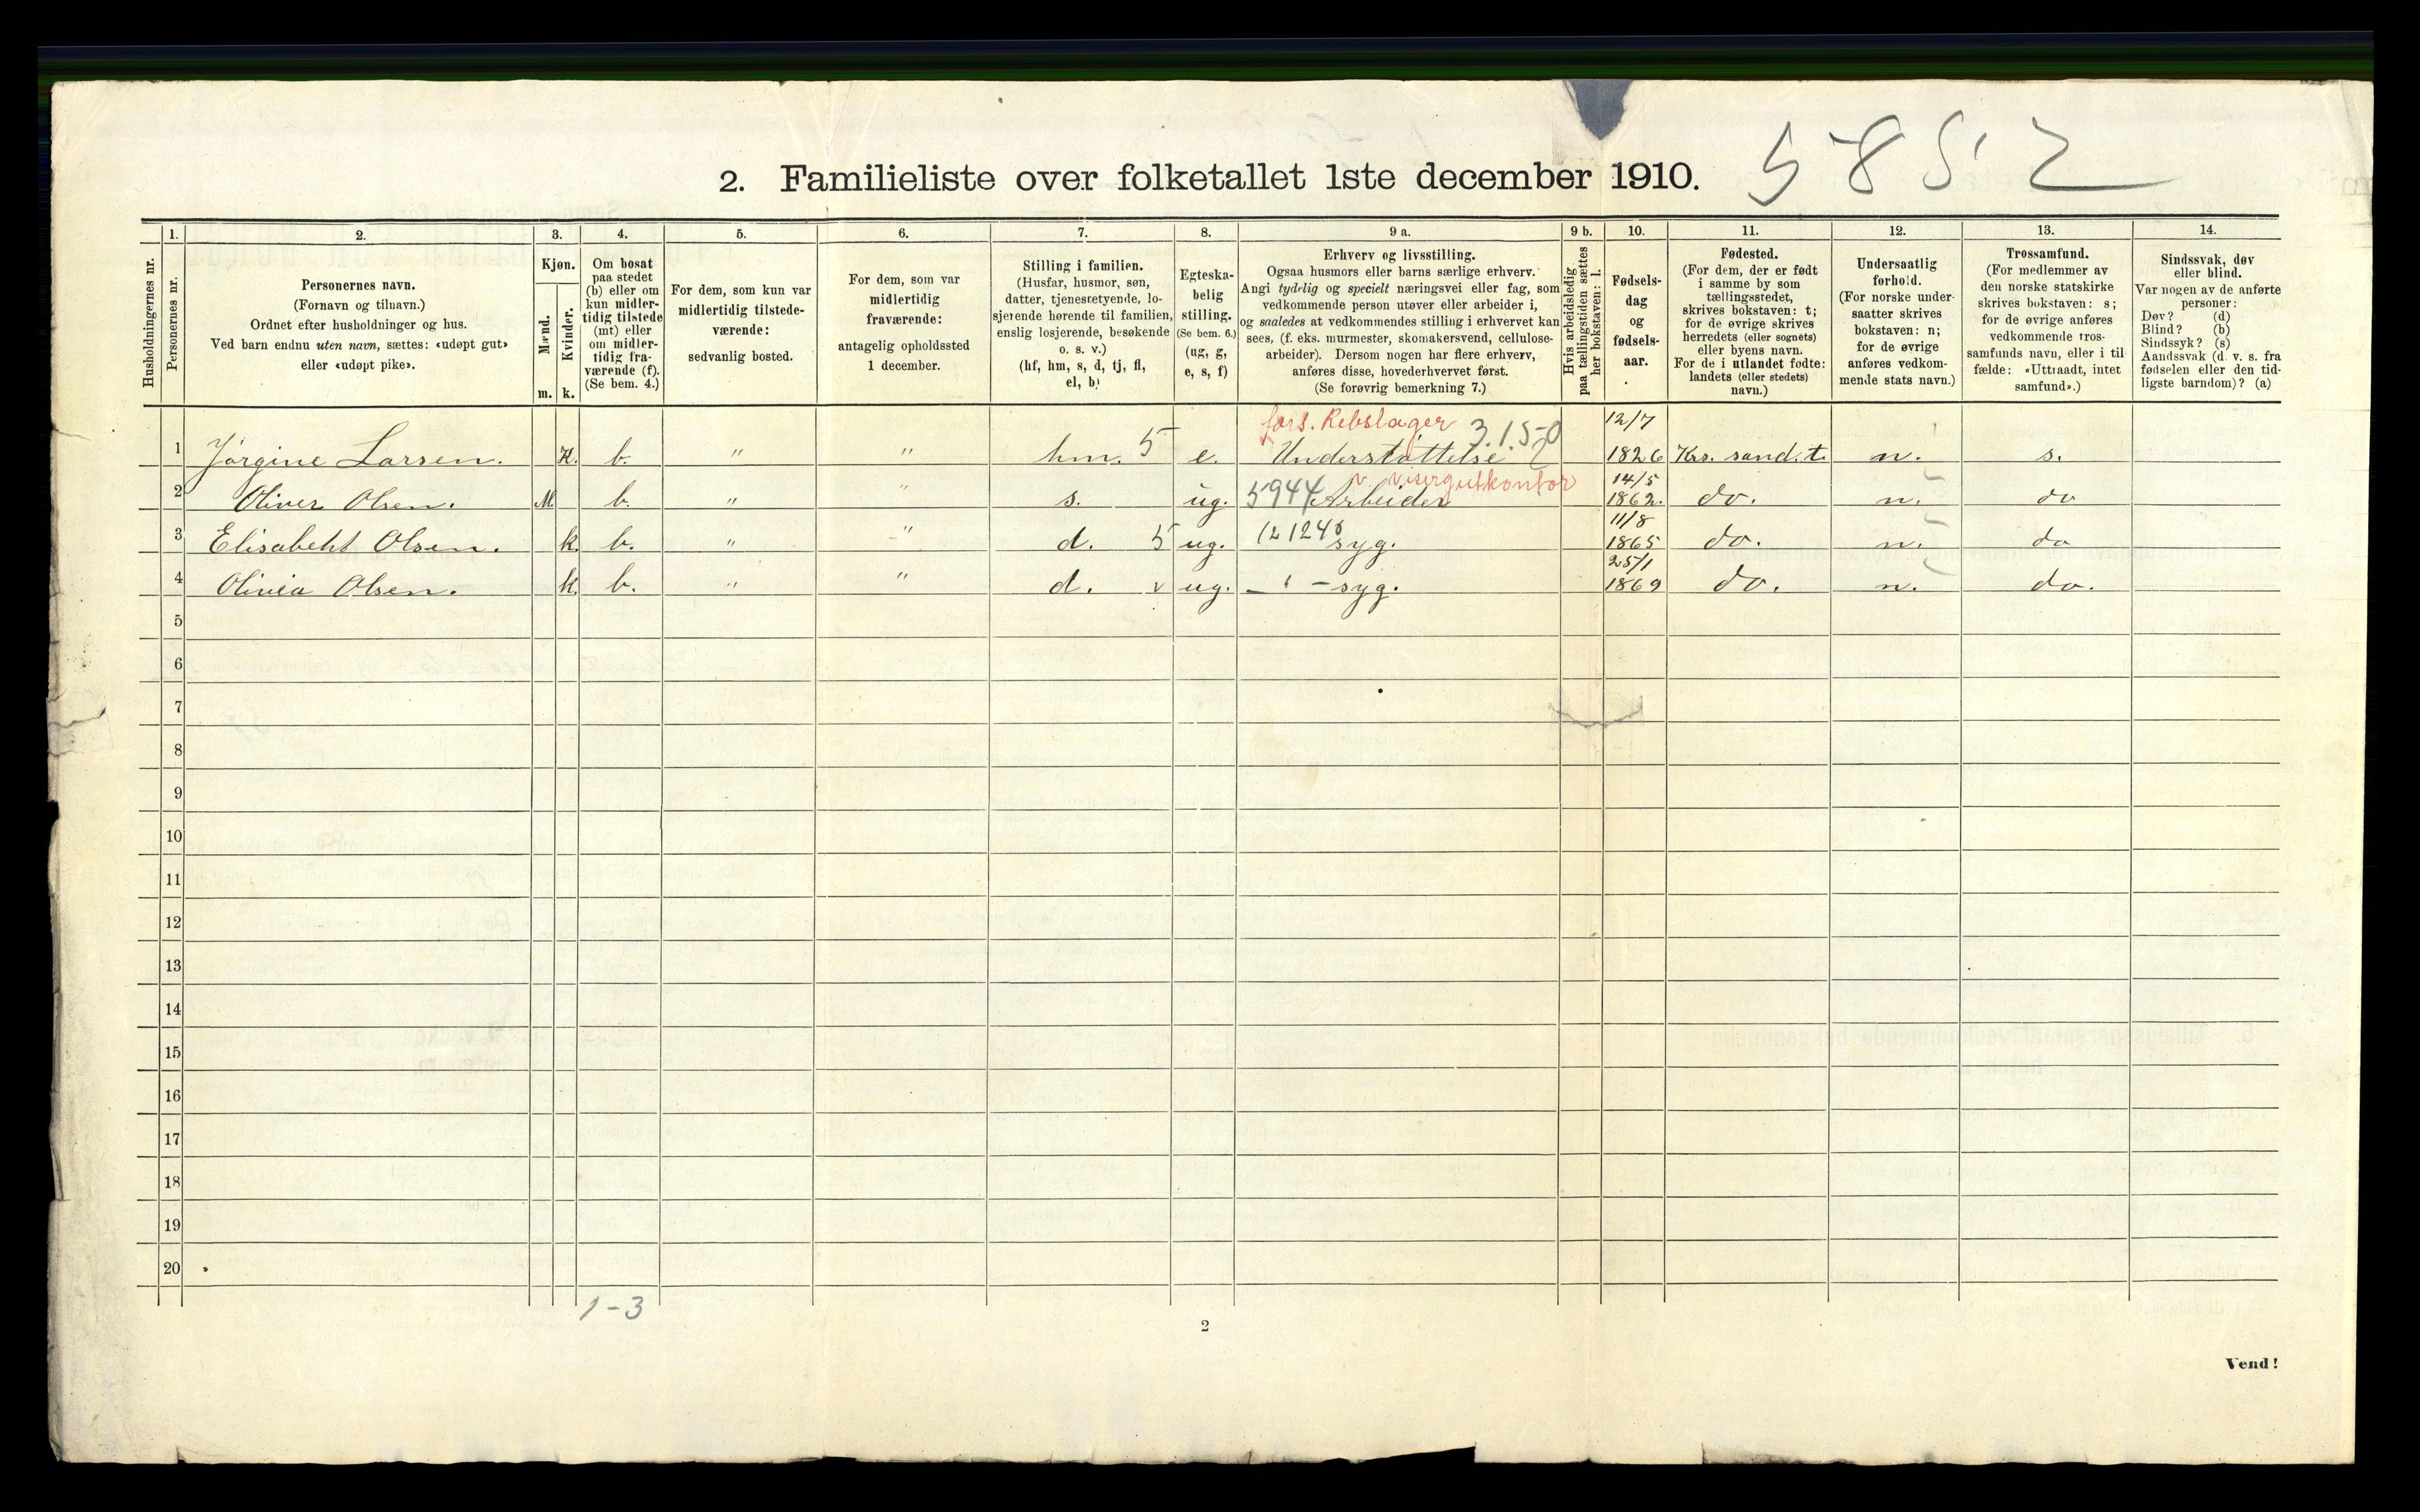 2. Familieliste over folketallet 1ste december 1910. 5852
Husholdningernes nr.
1. Personernes nr.
2. Personernes navn.
(Fornavn og tilnavn.)
Ordnet efter husholdninger og hus.
Ved barn endnu uten navn, sættes: «udøpt gut»
eller «udøpt pike».
3. Kjøn.
Mænd. m.
Kvinder. k.
4. Om bosat
paa stedet
(b) eller om
kun midler-
tidig tilstede
(mt) eller
om midler-
tidig fra-
værende (f).
(Se bem. 4.)
5. For dem, som kun var
midlertidig tilstede-
værende:
sedvanlig bosted.
6. For dem, som var
midlertidig
fraværende:
antagelig opholdssted
1 december.
7. Stilling i familien.
(Husfar, husmor, søn,
datter, tjenestetyende, lo-
sjerende hørende til familien,
enslig losjerende, besøkende
o. s. v.)
(hf, hm, s, d, tj, fl,
el, b)
8. Egteska-
belig
stilling.
(Se bem. 6.)
(ug, g,
e, s, f)
9 a. Erhverv og livsstilling.
Ogsaa husmors eller barns særlige erhverv.
Angi tydelig og specielt næringsvei eller fag, som
vedkommende person utøver eller arbeider i,
og saaledes at vedkommendes stilling i erhvervet kan
sees, (f. eks. murmester, skomakersvend, cellulose-
arbeider). Dersom nogen har flere erhverv,
anføres disse, hovederhvervet først.
(Se forøvrig bemerkning 7.)
9 b. Hvis arbeidsledig
paa tællingstiden sættes
her bokstaven: l.
10. Fødsels-
dag
og
fødsels-
aar.
11. Fødested.
(For dem, der er født
i samme by som
tællingsstedet,
skrives bokstaven: t;
for de øvrige skrives
herredets (eller sognets)
eller byens navn.
For de i utlandet fødte:
landets (eller stedets)
navn.)
12. Undersaatlig
forhold.
(For norske under-
saatter skrives
bokstaven: n;
for de øvrige
anføres vedkom-
mende stats navn.)
13. Trossamfund.
(For medlemmer av
den norske statskirke
skrives bokstaven: s;
for de øvrige anføres
vedkommende tros-
samfunds navn, eller i til
fælde: «Uttraadt, intet
samfund».)
14. Sindssvak, døv
eller blind.
Var nogen av de anførte
personer:
Døv? (d)
Blind? (b)
Sindssyk? (s)
Aandssvak (d. v. s. fra
fødselen eller den tid-
ligste barndom)? (a)
fors. Rebslager 3.1.50 12/7
1 Jørgine Larsen. K. b. " " hm. 5 e. Understøttelse 1826 Krs. sand. t. n. s.
v. visergutkontor 14/5
2 Oliver Olsen. M. b. " " s. ug. 5944 Arbeider 1862. do. n. do
11/8
3 Elisabeht Olsen. k. b. " " d. 5 ug. syg. 1865 do. n. do
25/1
4 Olivia Olsen. k. b. " " d. v ug. – ' – syg. 1869 do. n. do.
5
6
7
8
9
10
11
12
13
14
15
16
17
18
19
20
1-3
2
Vend!